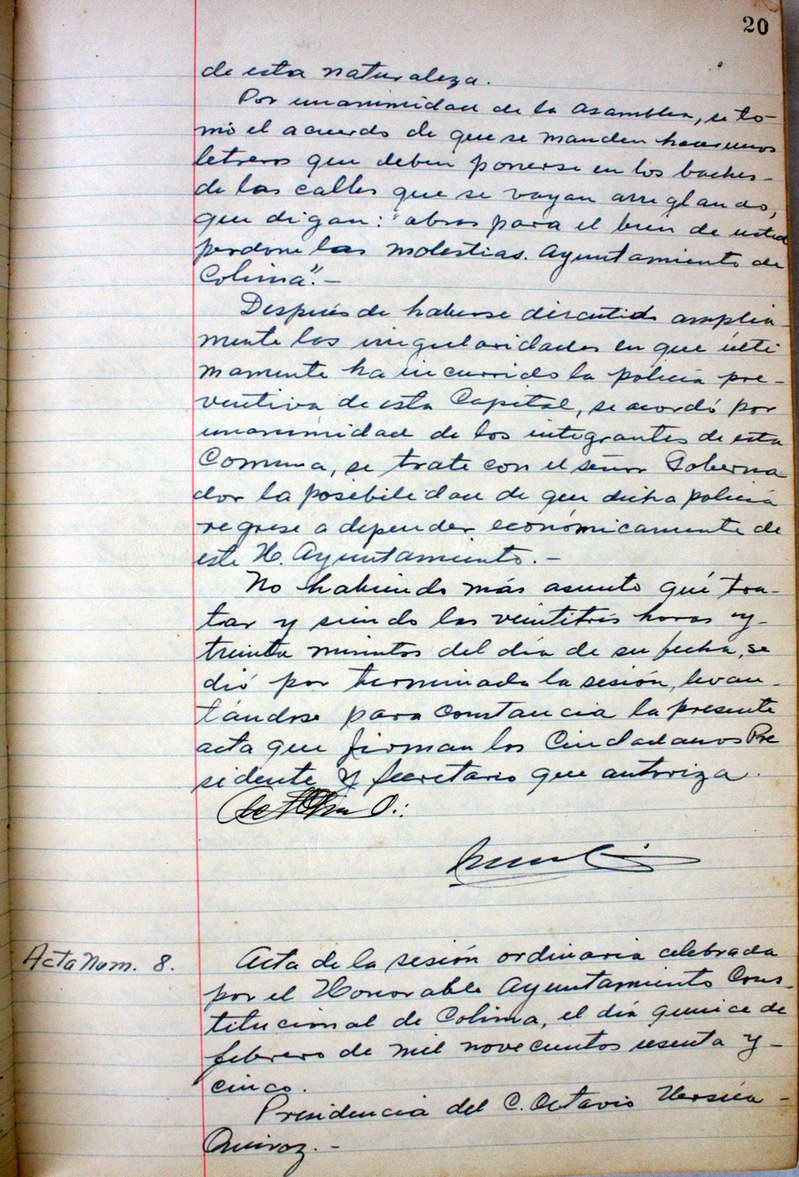 20
de esta naturaleza.
Por unanimidad de la asamblea, se to-
mó el acuerdo de que se manden hacer unos
letreros que deben ponerse en los baches-
de las calles que se vayan arreglando,
que digan: "obras para el bien de usted
perdone las molestias. Ayuntamiento de
Colima".-
Después de haberse discutido amplia-
mente las irregularidades en que últi
mamente ha incurrido la policía pre-
ventiva de esta Capital, se acordó por
unanimidad de los integrantes de esta
Comuna, se trate con el señor Goberna
dor la posibilidad de que dicha policía
regrese a depender económicamente de
este H. Ayuntamiento.-
No habiendo más asunto qué tra-
tar y siendo las veintitrés horas y-
treinta minutos del día de su fecha, se
dió por terminada la sesión, levan-
tándose para constancia la presente
acta que firman los Ciudadanos Pre
sidente y Secretario que autoriza.
Acta Num. 8.
Acta de la sesión ordinaria celebrada
por el Honorable Ayuntamiento Cons-
titucional de Colima, el día quince de
febrero de mil novecientos sesenta y-
cinco.
Presidencia del C. Octavio
Quiroz.-